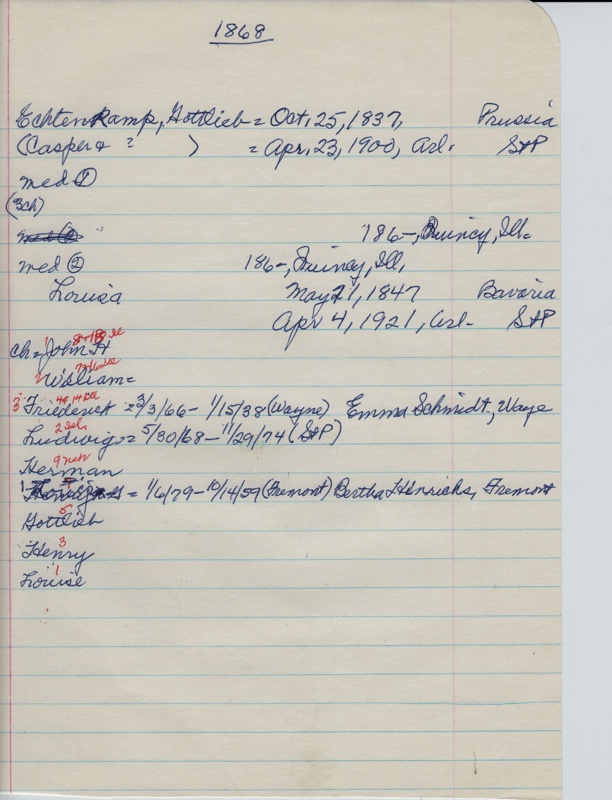 1868
Echtenkamp, Gottlieb = Oct. 25, 1837, Prussia
(Casper & ? ) = Apr. 23, 1900, Arl. StP
med ①
(3ch)
186-, Quincy, Ill.
med ② 186-, Quincy, Ill.
Louisa May 21, 1847 Bavaria
Apr 4, 1921, Arl. StP
1
ch = John H
2 William =
4g, 14 Dec
3 Friederick = 3/3/66 - 1/15/38 (Wayne) Emma Schmidt, Wayne
Ludwig = 5/30/68 - 11/29/74 (StP)
2 sch
Herman
9
= 1/6/79 - 10/14/59 (Fremont) Bertha Hinrichs, Fremont
5
Gottlieb
Henry
3
Louise
1